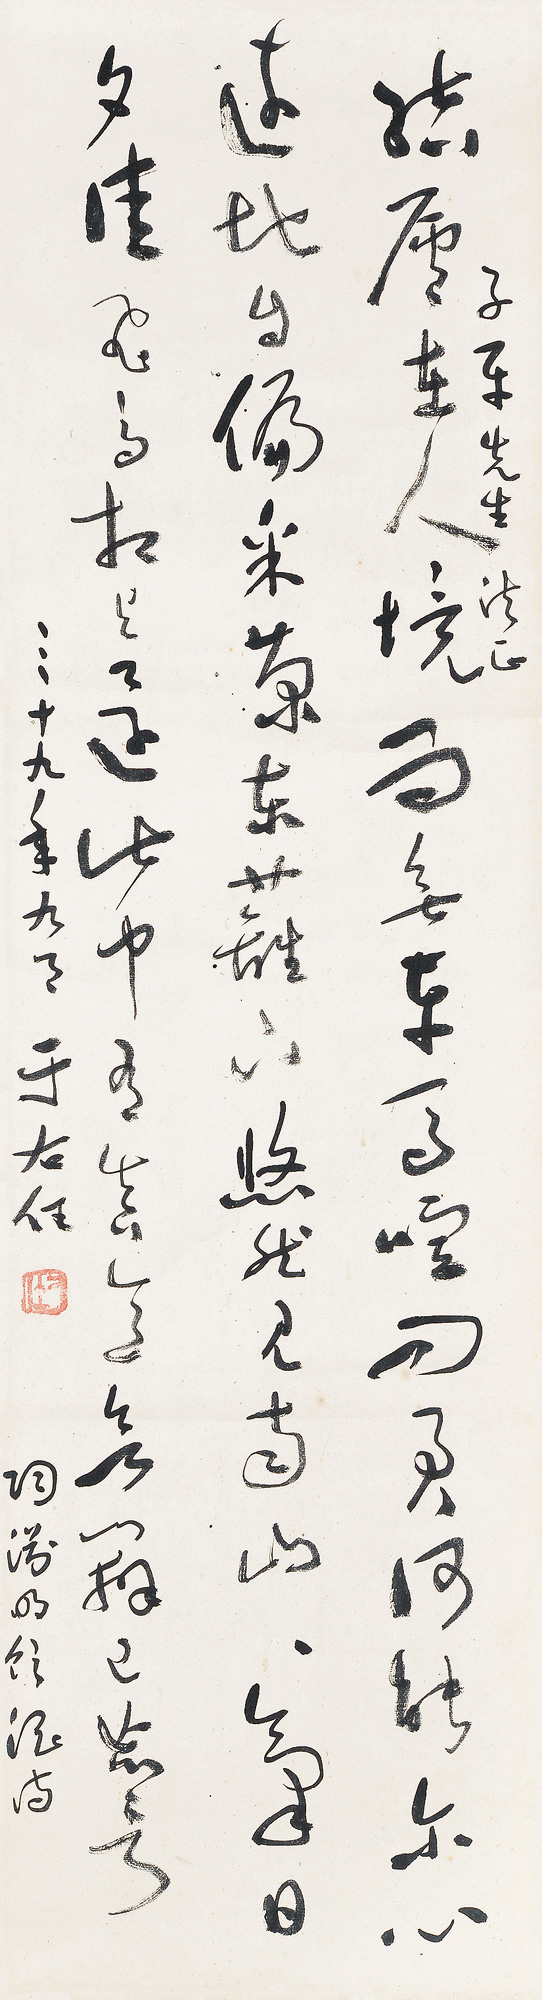 子 先生法正
結廬在人境而無車馬喧問君何能尔心
遠地自偏采菊東籬下悠然見南山、氣日
夕佳飛鳥相與還此中有真意欲辨已忘言
三十九年九月 于右任
陶淵明飲酒詩